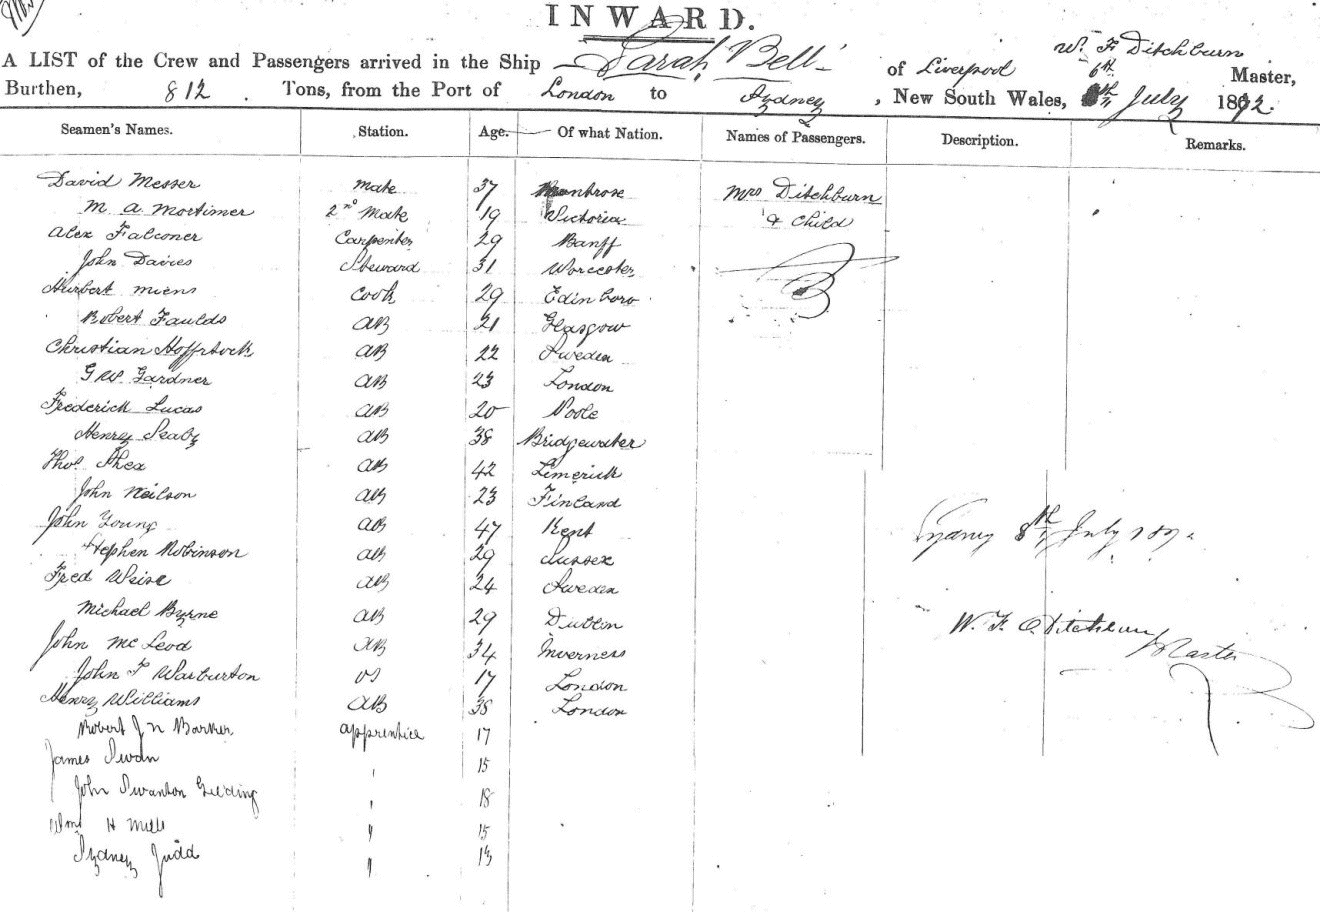 INWARD.
W. F Ditchburn
A LIST of the Crew and Passengers arrived in the Ship Sarah Bell of Liverpool Master,
6th
Burthen, 812 Tons, from the Port of London to Sydney, New South Wales, July 1872.
Seamen's Names. Station. Age. Of what Nation. Names of Passengers. Description. Remarks.
David Messer mate 37 Montrose Mrs Ditchburn
M A Mortimer 2nd Mate 19 Victoria & Child
Alex Falconer Carpenter 29 Banff
John Davies Steward 31 Worcester
Hurbert Miens Cook 29 Edinboro
Robert Faulds AB 21 Glasgow
Christian AB 22 Sweden
G W Gardner AB 23 London
Frederick Lucas AB 20 Poole
Henry Sealy AB 38 Bridgewater
Thos Shea AB 42 Limerick
John Neilson AB 23 Finland
John Young AB 47 Kent
Sydney 8th July 187
Stephen Robinson AB 29 Sussex
Fred Weise AB 24 Sweden
Michael Byrne AB 29 Dublin
W. F. Ditchburn
John McLeod AB 34 Inverness
Master
John F Warburton OS 17 London
Henry Williams AB 38 London
Robert J N Barker apprentice 17
James Swan " 15
John Swanton " 18
Wm H Mills " 15
Sydney Judd " 15